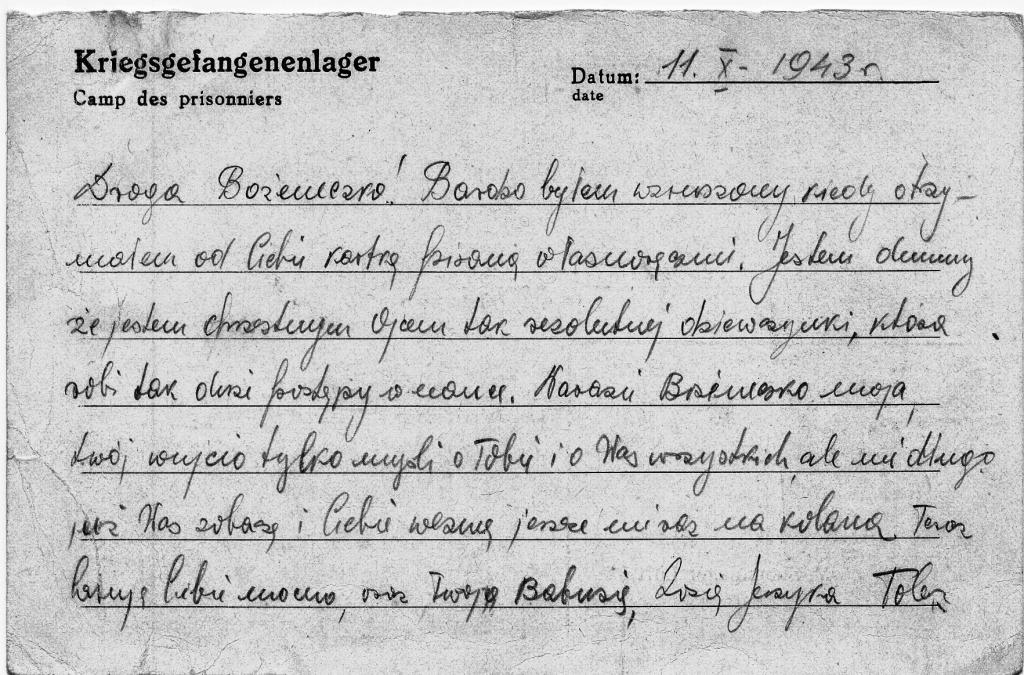 Kriegsgefangenenlager
Camp des prisonniers
Datum: 11. X - 1943 r.
date
Droga Bożeneczko! Bardzo byłem wzruszony kiedy otrzy-
małem od Ciebie kartkę pisaną własnoręcznie. Jestem dumny
że jestem chrzestnym Ojcem tak rezolutnej dziewczynki, która
robi tak duże postępy w nauce. Narazie Bożeneczko moja,
twój wujcio tylko myśli o Tobie i o Was wszystkich, ale nie długo
już Was zobaczę i Ciebie wezmę jeszcze nie raz na kolana. Teraz
całuję Ciebie mocno, oraz Twoją Babusię, Zosię Jerzyka Tolka